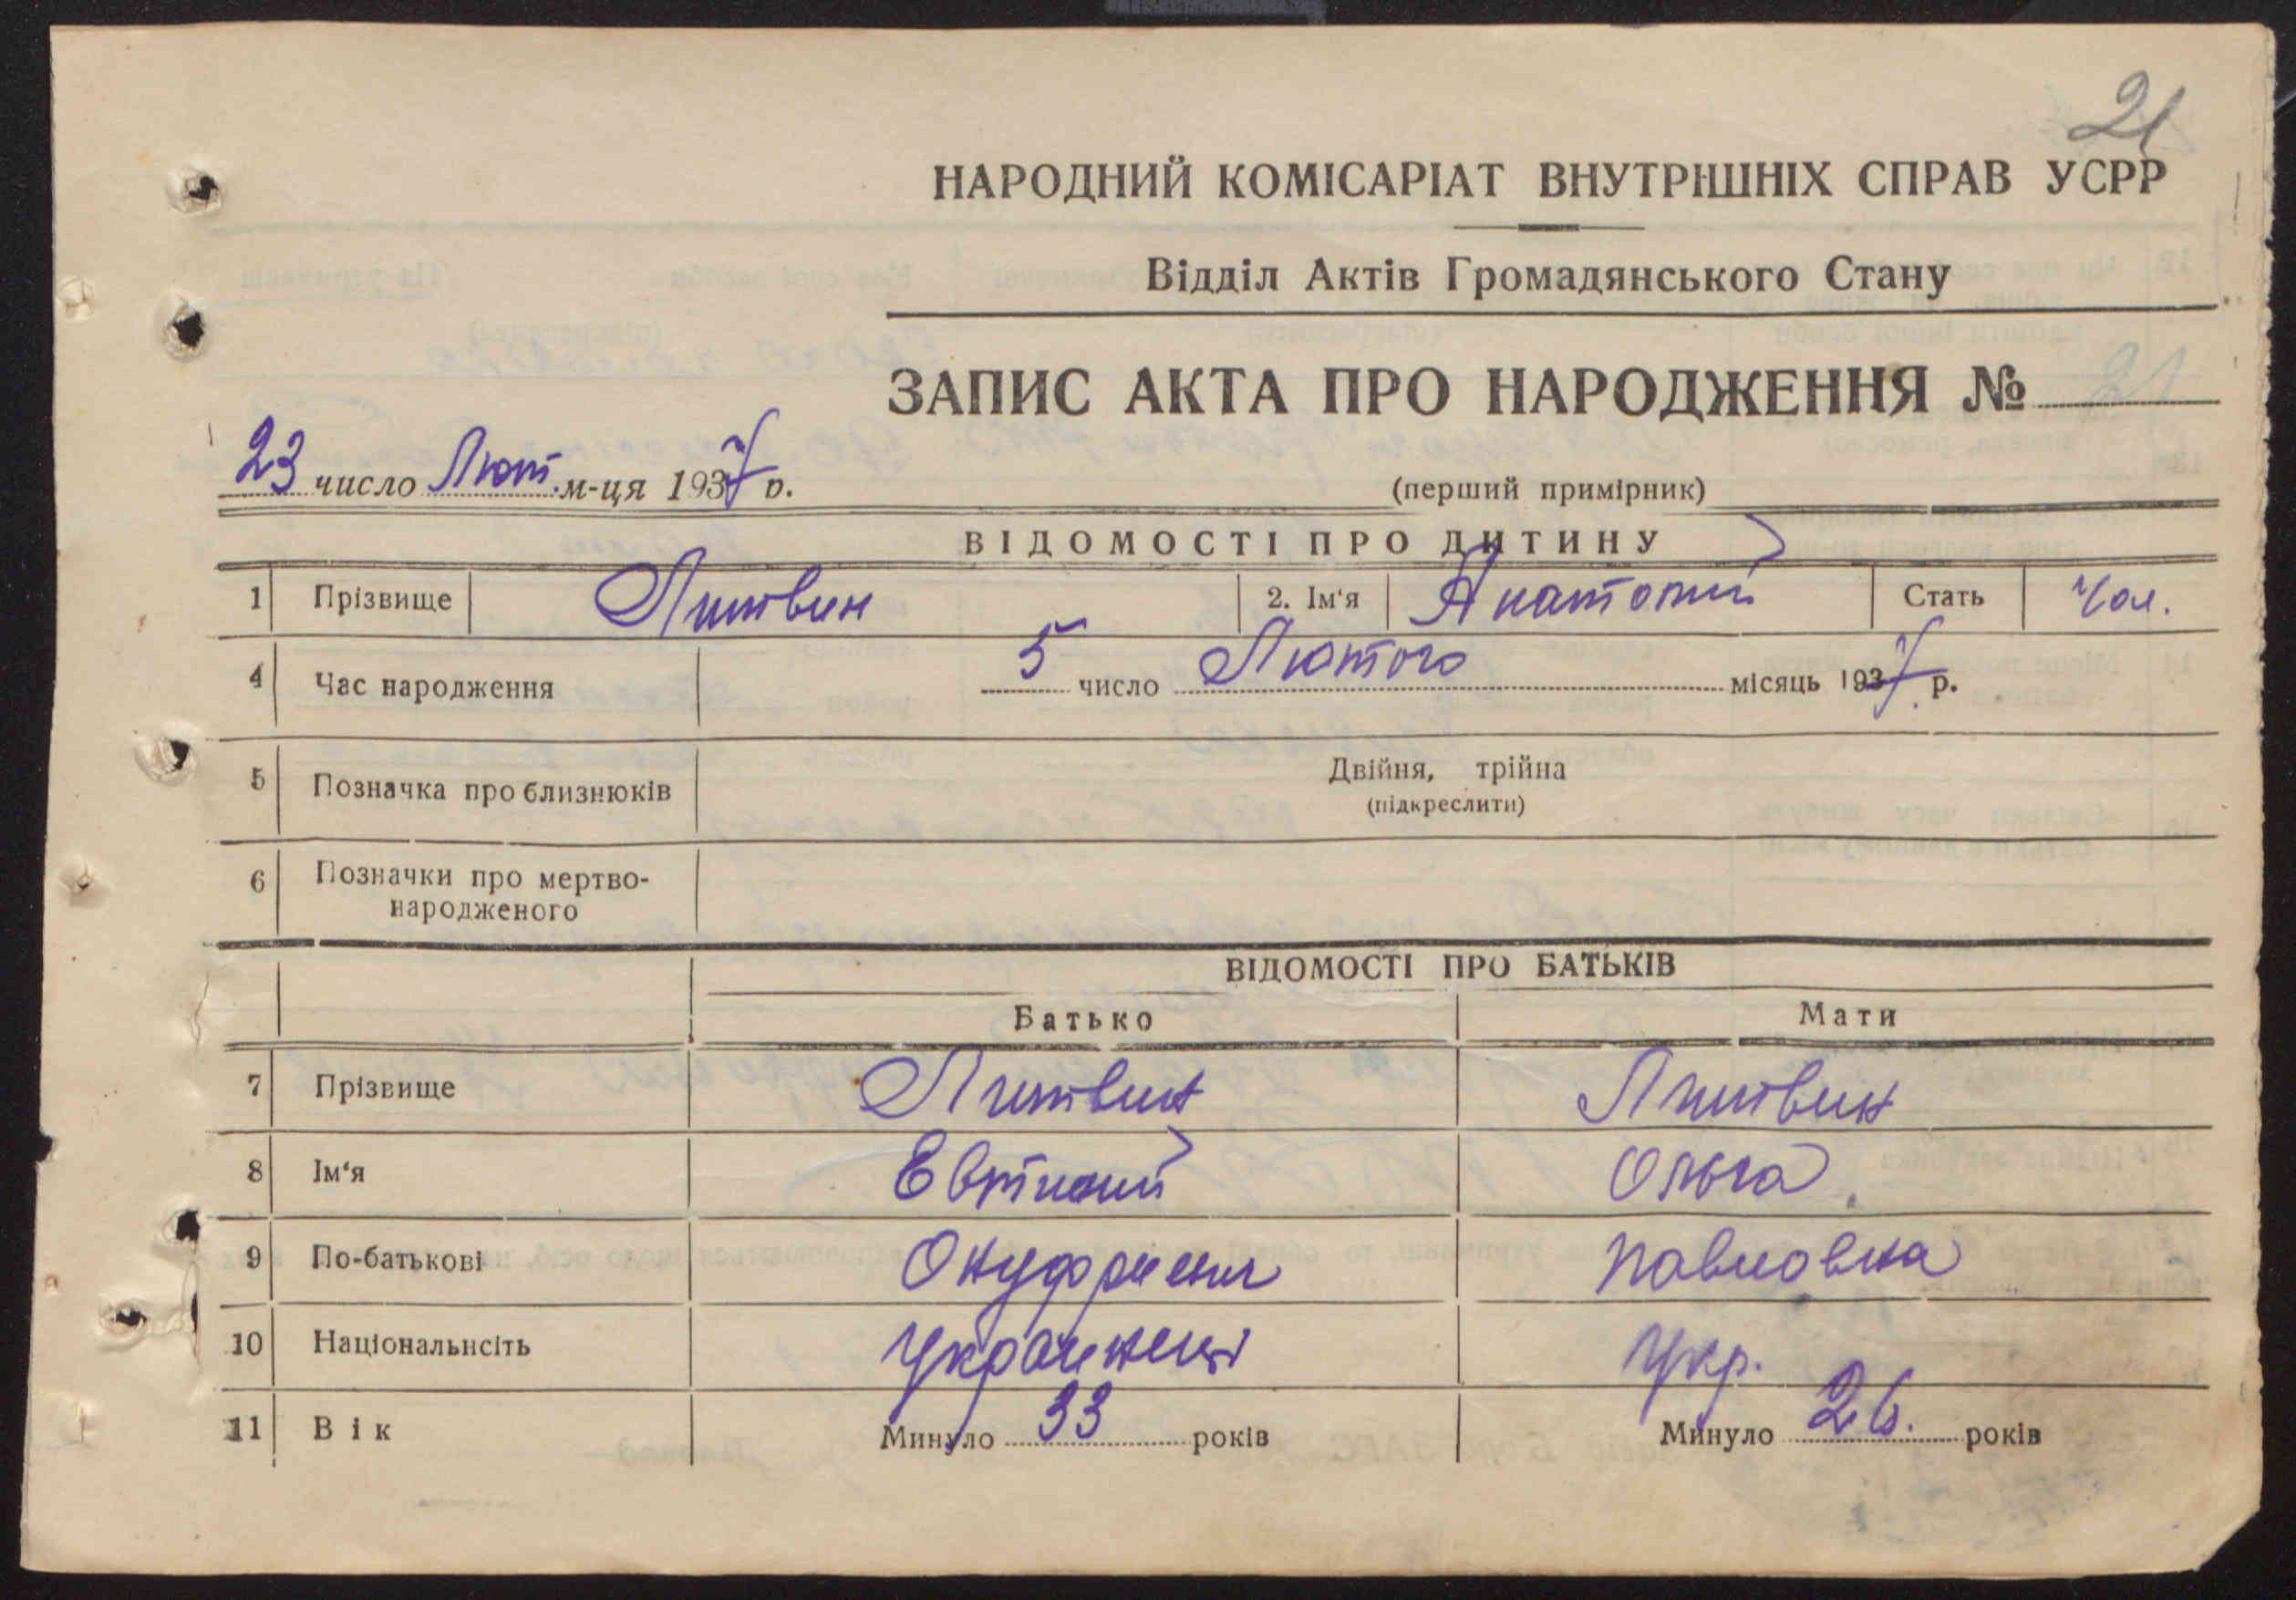 21
НАРОДНИЙ КОМІСАРІАТ ВНУТРІШНІХ СПРАВ УСРР
Відділ Актів Громадянського Стану
ЗАПИС АКТА ПРО НАРОДЖЕННЯ № 21
23 число Лют. м-ця 1937 р.
(перший примірник)
ВІДОМОСТІ ПРО ДИТИНУ
1 Прізвище Литвин 2. Ім'я Анатолий Стать Чол.
4 Час народження 5 число Лютого місяць 1937 р.
5 Позначка про близнюків Двійня, трійна
(підкреслити)
6 Позначки про мертво-
народженого
ВІДОМОСТІ ПРО БАТЬКІВ
Батько Мати
7 Прізвище Литвин Литвин
8 Ім'я Ольга
9 По-батькові Павловна
10 Національнсіть Укр.
11 Вік Минуло 33 років Минуло 26. років